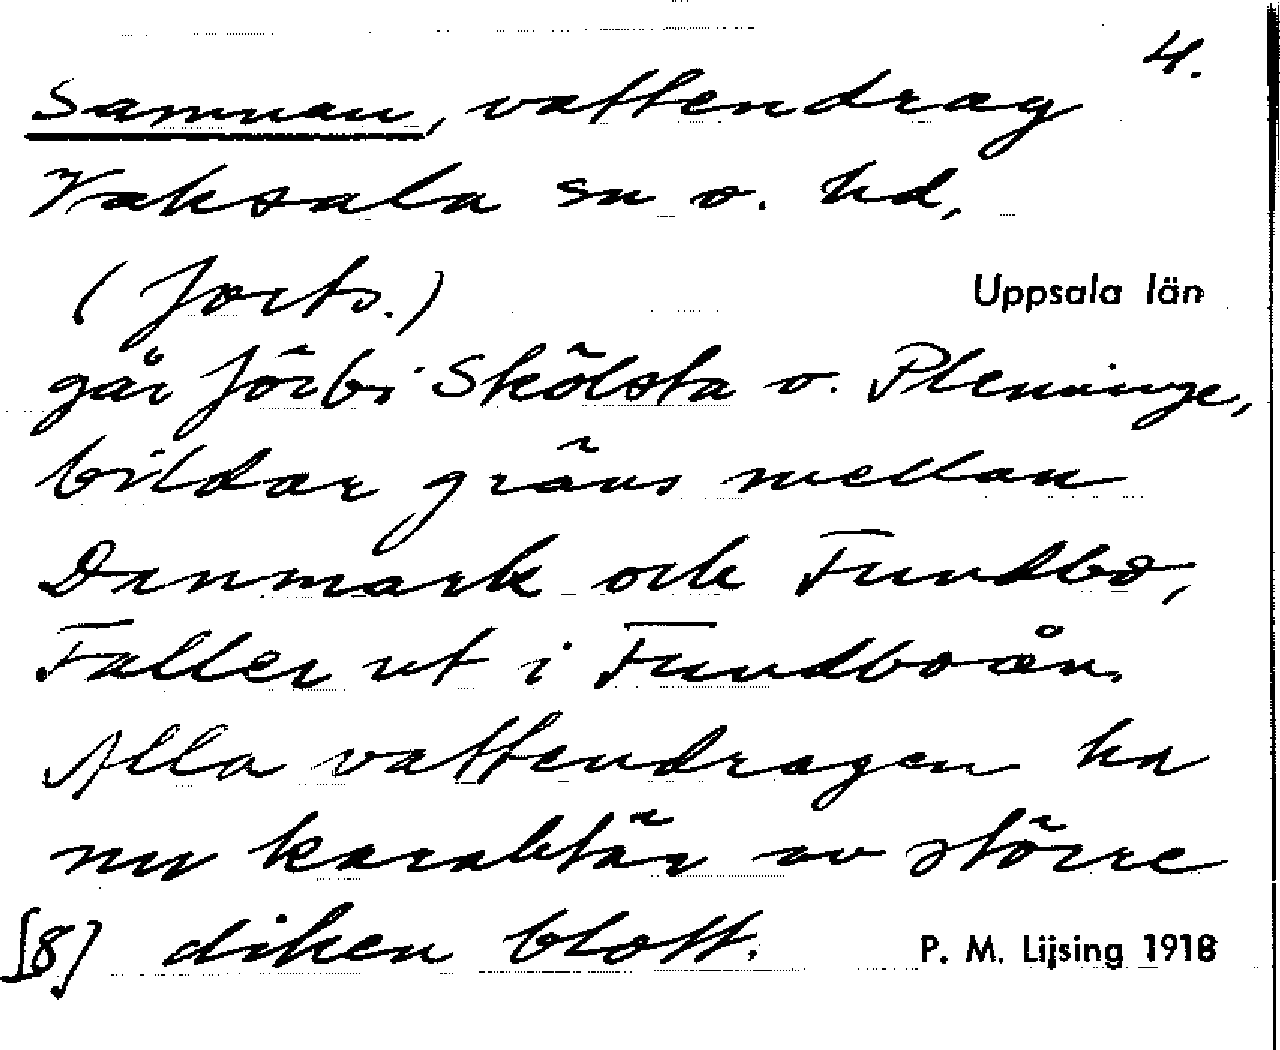 4.
Samnan, vattendrag
Vaksala sn o. hd,
(forts.)
Uppsala län
går förbi Skölsta o. Plenninge,
bildar gräns mellan
Danmark och Fundbo,
Faller ut i Fundboån.
Alla vattendragen ha
nu karaktär av större
[8] diken blott.
P. M. Lijsing 1918